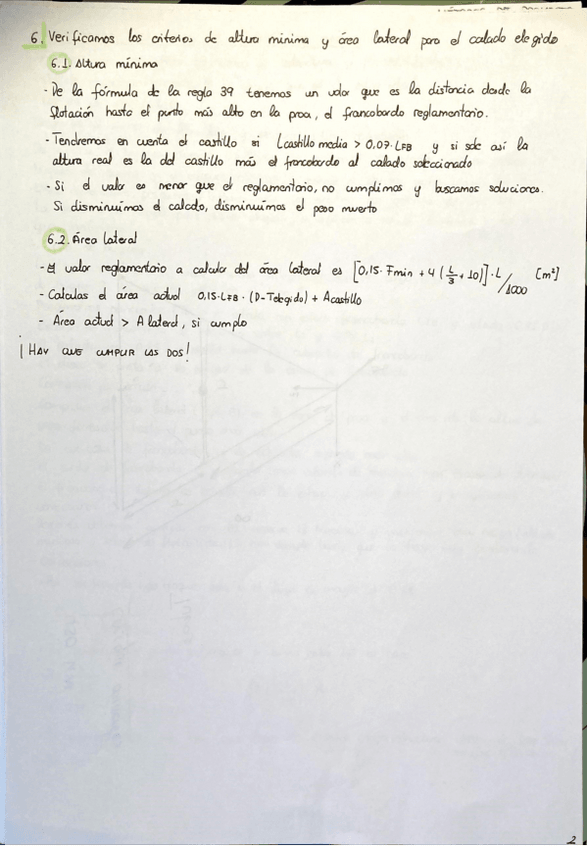 6. Verificamos los criterios de altura minima y área lateral para el calado elegido
6.1. Altura mínima
- De la fórmula de la regla 39 tenemos un valor que es la distancia desde la
flotación hasta el punto más alto en la proa, el francobordo reglamentario.
- Tendremos en cuenta el castillo si Lcastillo media > 0,07·LFB y si sale así la
altura real es la del castillo más el francobordo al calado seleccionado
- Si el valor es menor que el reglamentario, no cumplimos y buscamos soluciones.
Si disminuimos el calado, disminuimos el peso muerto
6.2. Área lateral
- El valor reglamentario a calcular del área lateral es [0,15· Fmin + 4 (L/3 + 10)] · L/1000 [m²]
- Calculas el área actual 0,15·LFB · (D-Telegido) + Acastillo
- Área actual > Alateral, si cumplo
¡HAY QUE CUMPLIR LAS DOS!
2